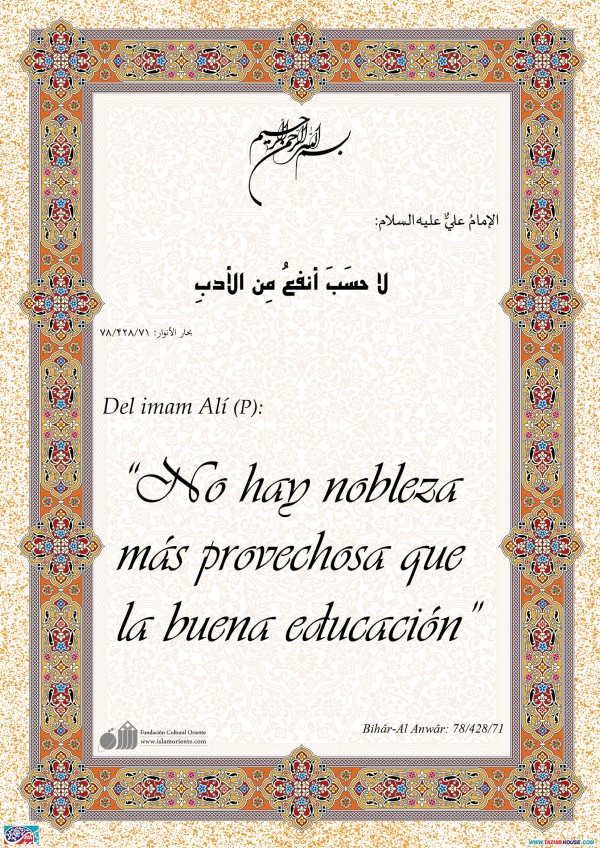 بسم الله الرحمن الرحيم
الإمامُ عليٌّ عليه السلام:
لا حسَبَ أنفعُ مِن الأدبِ
بحار الأنوار: ٧٨/۴٢٨/٧١
Del imam Alí (P):
“No hay nobleza
más provechosa que
la buena educación”
Fundación Cultural Oriente
www.islamoriente.com
Bihâr-Al Anwâr: 78/428/71
WWW.TAZHIBHOUSE.COM